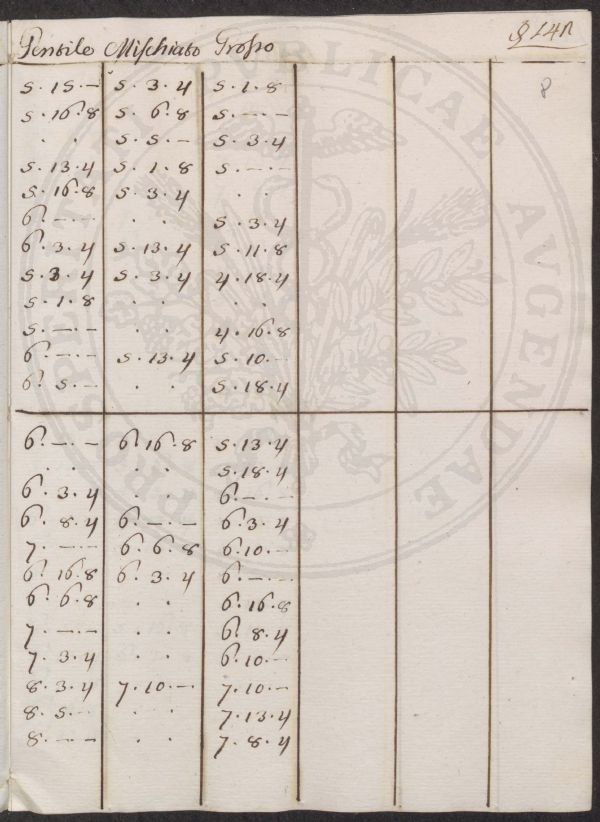 Gentile Mischiato Grosso
5.15.— 5.3.4 5.1.8
8
5.16.8 5.6.8 5.—.—
. . 5.5.— 5.3.4
5.13.4 5.1.8 5.—.—
5.16.8 5.3.4 . .
6.—.— . . 5.3.4
6.3.4 5.13.4 5.11.8
5.3.4 5.3.4 4.18.4
5.1.8 . . . .
5.—.— . . 4.16.8
6.—.— 5.13.4 5.10.—
6.5.— . . 5.18.4
6.—.— 6.16.8 5.13.4
. . . . 5.18.4
6.3.4 . . 6.—.—
6.8.4 6.—.— 6.3.4
7.—.— 6.6.8 6.10.—
6.16.8 6.3.4 6.—.—
6.6.8 . . 6.16.8
7.—.— . . 6.8.4
7.3.4 . . 6.10.—
8.3.4 7.10.— 7.10.—
8.5.— . . 7.13.4
8.—.— . . 7.8.4
PROSPERITATI PVBLICAE AVGENDAE